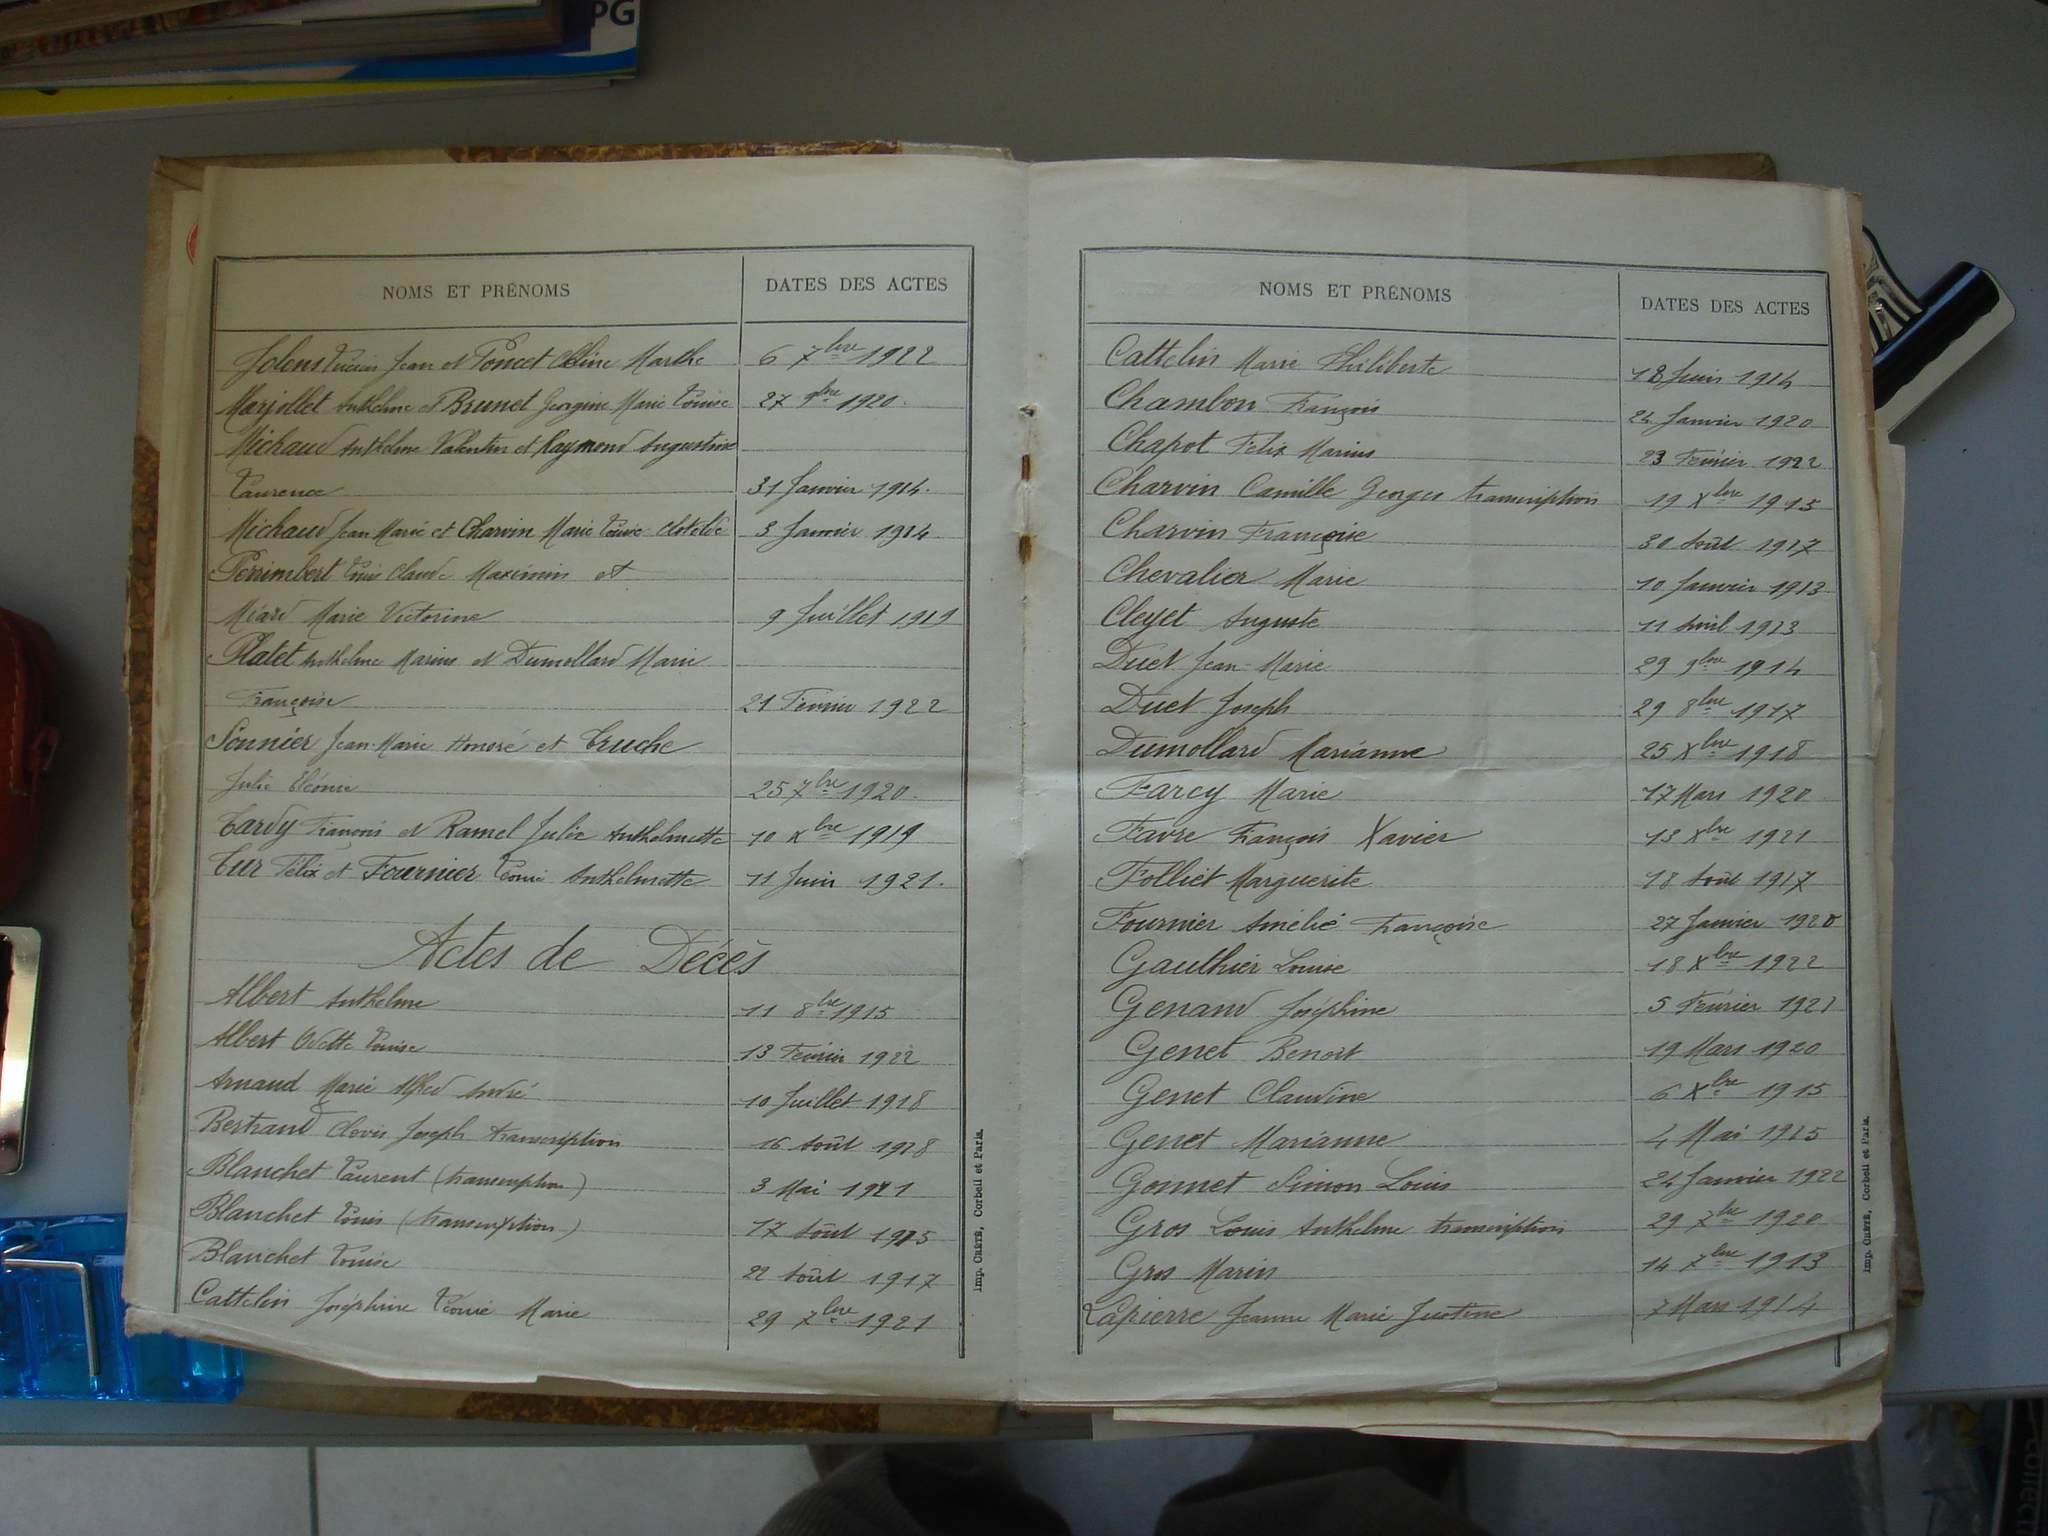 PG
NOMS ET PRÉNOMS
DATES DES ACTES
Jolens Lucien Jean et Poncet Céline Marthe 6 7bre 1922
Marjollet Anthelme et Brunet Georgine Marie Louise 27 9bre 1920.
Michaud Anthelme Valentin et Raymond Augustine
Laurence 31 Janvier 1914.
Michaud Jean Marie et Charvin Marie Louise Clotilde 3 Janvier 1914
Perrimbert Louis Claude Maximin et
Méard Marie Victorine 9 Juillet 1919
Platet Anthelme Marius et Dumollard Marie
Françoise 21 Février 1922
Sonnier Jean-Marie Honoré et Truche
Julie Eléonie 25 7bre 1920.
Tardy François et Ramel Julie Anthelmette 10 Xbre 1919
Tur Félix et Fournier Léonie Anthelmette 11 Juin 1921.
Actes de Décès
Albert Anthelme 11 8bre 1915
Albert Odette Louise 13 Février 1922
Arnaud Marie Alfred André 10 Juillet 1918
Bertrand Clovis Joseph transcription 16 Août 1918
Blanchet Laurent (transcription) 3 Mai 1921
Blanchet Louis (transcription) 17 Août 1915
Blanchet Louise 22 Août 1917
Cattelin Joséphine Léonie Marie 29 7bre 1921
Imp. CRÉTÉ, Corbeil et Paris.
NOMS ET PRÉNOMS
DATES DES ACTES
Cattelin Marie Philiberte 18 Juin 1914
Chambon François 24 Janvier 1920
Chapot Félix Marius 23 Février 1922
Charvin Camille Georges transcription 19 Xbre 1915
Charvin Françoise 30 Août 1917
Chevalier Marie 10 Janvier 1913
Cleyet Auguste 11 Avril 1913
Duet Jean-Marie 29 9bre 1914
Duet Joseph 29 8bre 1917
Dumollard Marianne 25 Xbre 1918
Farcy Marie 17 Mars 1920
Favre François Xavier 13 Xbre 1921
Folliet Marguerite 18 Août 1917
Fournier Amélie Françoise 27 Janvier 1920
Gauthier Louise 18 Xbre 1922
Genand Joséphine 5 Février 1921
Genet Benoit 19 Mars 1920
Genet Claudine 6 Xbre 1915
Genet Marianne 4 Mai 1915
Gonnet Simon Louis 24 Janvier 1922
Gros Louis Anthelme transcription 29 7bre 1920
Gros Marin 14 7bre 1913
Lapierre Jeanne Marie Justine 7 Mars 1914
Imp. CRÉTÉ, Corbeil et Paris.